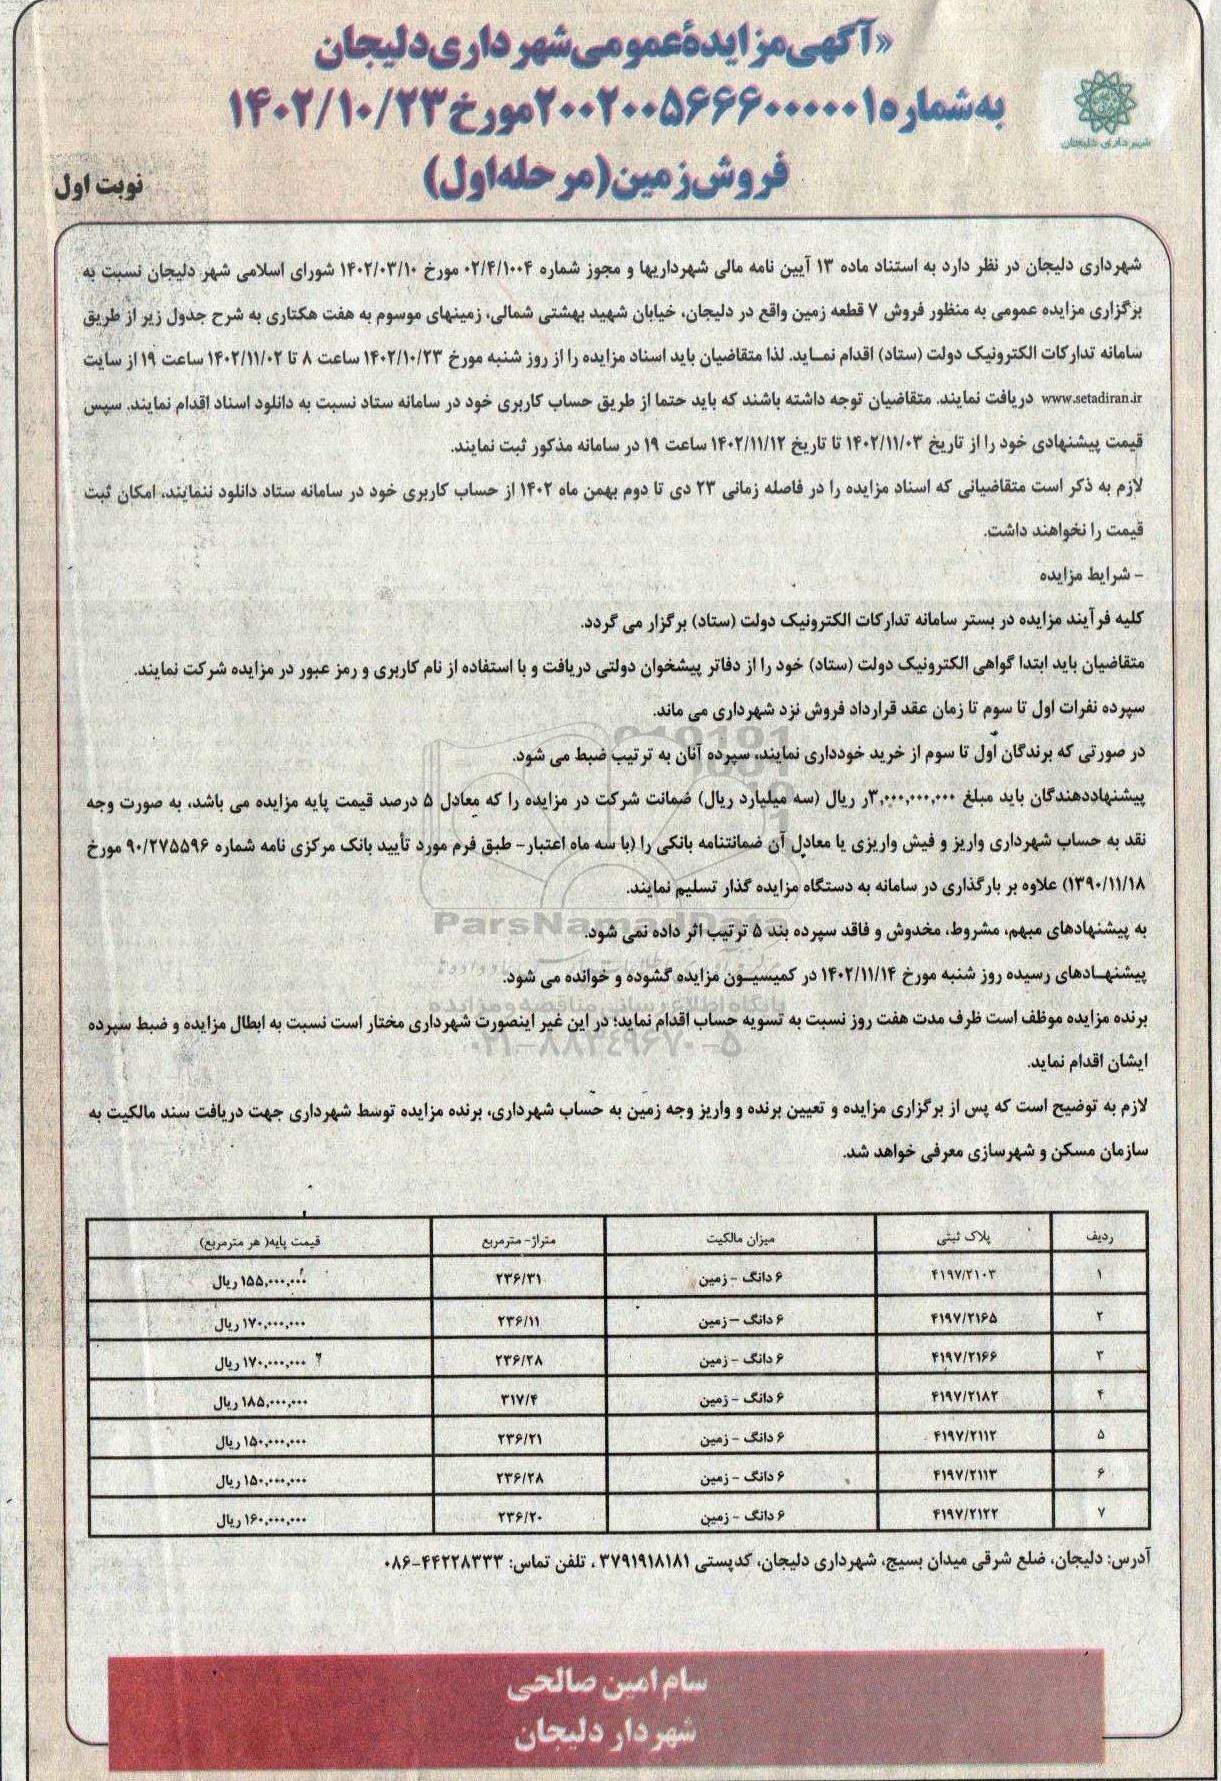 «آگهی مزایدهٔ عمومی شهرداری دلیجان
به شماره ۲۰۰۲۰۰۵۶۶۶۰۰۰۰۰۱ مورخ ۱۴۰۲/۱۰/۲۳
فروش زمین (مرحله اول)
نوبت اول
شهرداری دلیجان
شهرداری دلیجان در نظر دارد به استناد ماده ۱۳ آیین نامه مالی شهرداریها و مجوز شماره ۰۲/۴/۱۰۰۴ مورخ ۱۴۰۲/۰۳/۱۰ شورای اسلامی شهر دلیجان نسبت به
برگزاری مزایده عمومی به منظور فروش ۷ قطعه زمین واقع در دلیجان، خیابان شهید بهشتی شمالی، زمینهای موسوم به هفت هکتاری به شرح جدول زیر از طریق
سامانه تدارکات الکترونیک دولت (ستاد) اقدام نمـاید. لذا متقاضیان باید اسناد مزایده را از روز شنبه مورخ ۱۴۰۲/۱۰/۲۳ ساعت ۸ تا ۱۴۰۲/۱۱/۰۲ ساعت ۱۹ از سایت
www.setadiran.ir دریافت نمایند. متقاضیان توجه داشته باشند که باید حتما از طریق حساب کاربری خود در سامانه ستاد نسبت به دانلود اسناد اقدام نمایند. سپس
قیمت پیشنهادی خود را از تاریخ ۱۴۰۲/۱۱/۰۳ تا تاریخ ۱۴۰۲/۱۱/۱۲ ساعت ۱۹ در سامانه مذکور ثبت نمایند.
لازم به ذکر است متقاضیانی که اسناد مزایده را در فاصله زمانی ۲۳ دی تا دوم بهمن ماه ۱۴۰۲ از حساب کاربری خود در سامانه ستاد دانلود ننمایند، امکان ثبت
قیمت را نخواهند داشت.
- شرایط مزایده
کلیه فرآیند مزایده در بستر سامانه تدارکات الکترونیک دولت (ستاد) برگزار می گردد.
متقاضیان باید ابتدا گواهی الکترونیک دولت (ستاد) خود را از دفاتر پیشخوان دولتی دریافت و با استفاده از نام کاربری و رمز عبور در مزایده شرکت نمایند.
سپرده نفرات اول تا سوم تا زمان عقد قرارداد فروش نزد شهرداری می ماند.
در صورتی که برندگان اول تا سوم از خرید خودداری نمایند، سپرده آنان به ترتیب ضبط می شود.
پیشنهاددهندگان باید مبلغ ۳,۰۰۰,۰۰۰,۰۰۰ر ریال (سه میلیارد ریال) ضمانت شرکت در مزایده را که معادل ۵ درصد قیمت پایه مزایده می باشد، به صورت وجه
نقد به حساب شهرداری واریز و فیش واریزی یا معادل آن ضمانتنامه بانکی را (با سه ماه اعتبار- طبق فرم مورد تأیید بانک مرکزی نامه شماره ۹۰/۲۷۵۵۹۶ مورخ
۱۳۹۰/۱۱/۱۸) علاوه بر بارگذاری در سامانه به دستگاه مزایده گذار تسلیم نمایند.
ParsNamadData
به پیشنهادهای مبهم، مشروط، مخدوش و فاقد سپرده بند ۵ ترتیب اثر داده نمی شود.
پیشنهـادهای رسیده روز شنبه مورخ ۱۴۰۲/۱۱/۱۴ در کمیسیـون مزایده گشوده و خوانده می شود.
پایگاه اطلاع رسانی مناقصه و مزایده
برنده مزایده موظف است ظرف مدت هفت روز نسبت به تسویه حساب اقدام نماید؛ در این غیر اینصورت شهرداری مختار است نسبت به ابطال مزایده و ضبط سپرده
۰۲۱-۸۸۳۴۹۶۷۰-۵
ایشان اقدام نماید.
لازم به توضیح است که پس از برگزاری مزایده و تعیین برنده و واریز وجه زمین به حساب شهرداری، برنده مزایده توسط شهرداری جهت دریافت سند مالکیت به
سازمان مسکن و شهرسازی معرفی خواهد شد.
ردیف پلاک ثبتی میزان مالکیت متراژ- مترمربع قیمت پایه( هر مترمربع)
۱ ۴۱۹۷/۲۱۰۳ ۶ دانگ - زمین ۲۳۶/۳۱ ۱۵۵,۰۰۰,۰۰۰ ریال
۲ ۴۱۹۷/۲۱۶۵ ۶ دانگ - زمین ۲۳۶/۱۱ ۱۷۰,۰۰۰,۰۰۰ ریال
۳ ۴۱۹۷/۲۱۶۶ ۶ دانگ - زمین ۲۳۶/۲۸ ۱۷۰,۰۰۰,۰۰۰ ریال
۴ ۴۱۹۷/۲۱۸۲ ۶ دانگ - زمین ۳۱۷/۴ ۱۸۵,۰۰۰,۰۰۰ ریال
۵ ۴۱۹۷/۲۱۱۲ ۶ دانگ - زمین ۲۳۶/۲۱ ۱۵۰,۰۰۰,۰۰۰ ریال
۶ ۴۱۹۷/۲۱۱۳ ۶ دانگ - زمین ۲۳۶/۲۸ ۱۵۰,۰۰۰,۰۰۰ ریال
۷ ۴۱۹۷/۲۱۲۲ ۶ دانگ - زمین ۲۳۶/۲۰ ۱۶۰,۰۰۰,۰۰۰ ریال
آدرس: دلیجان، ضلع شرقی میدان بسیج، شهرداری دلیجان، کدپستی ۳۷۹۱۹۱۸۱۸۱ ، تلفن تماس: ۴۴۲۲۸۳۳۳-۰۸۶
سام امین صالحی
شهردار دلیجان